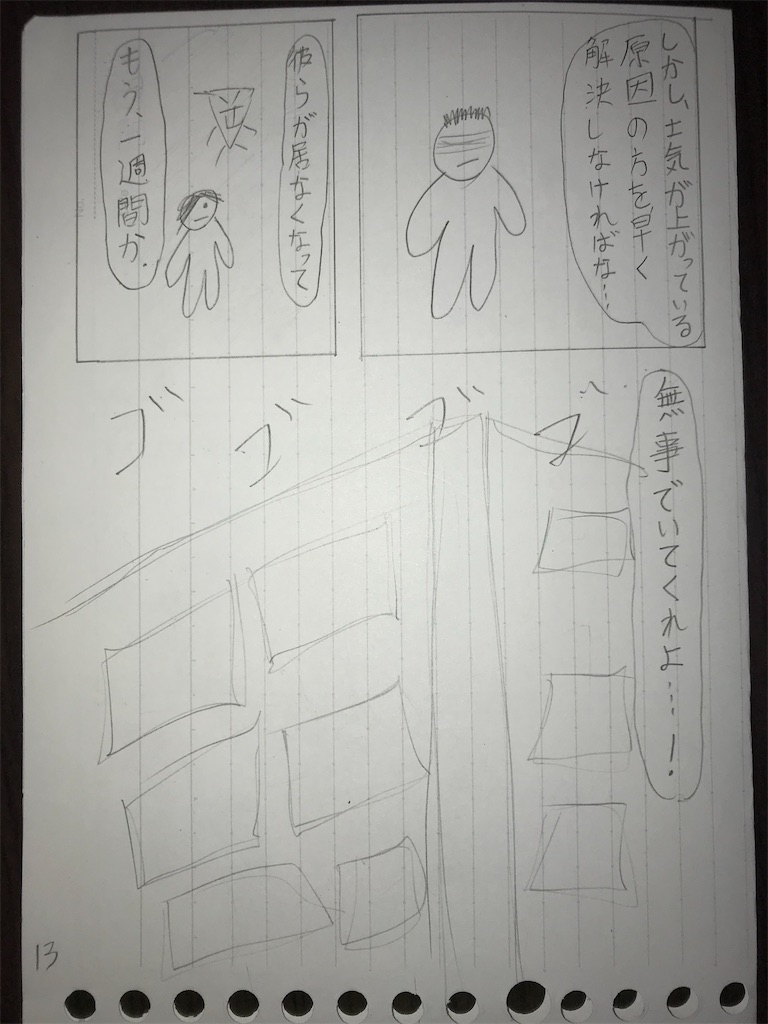 しかし、士気が上がっている
原因の方を早く
解決しなければな…
彼らが居なくなって
もう、一週間か.
無事でいてくれよ…!
ゴ
ゴ
ゴ
ゴ
13